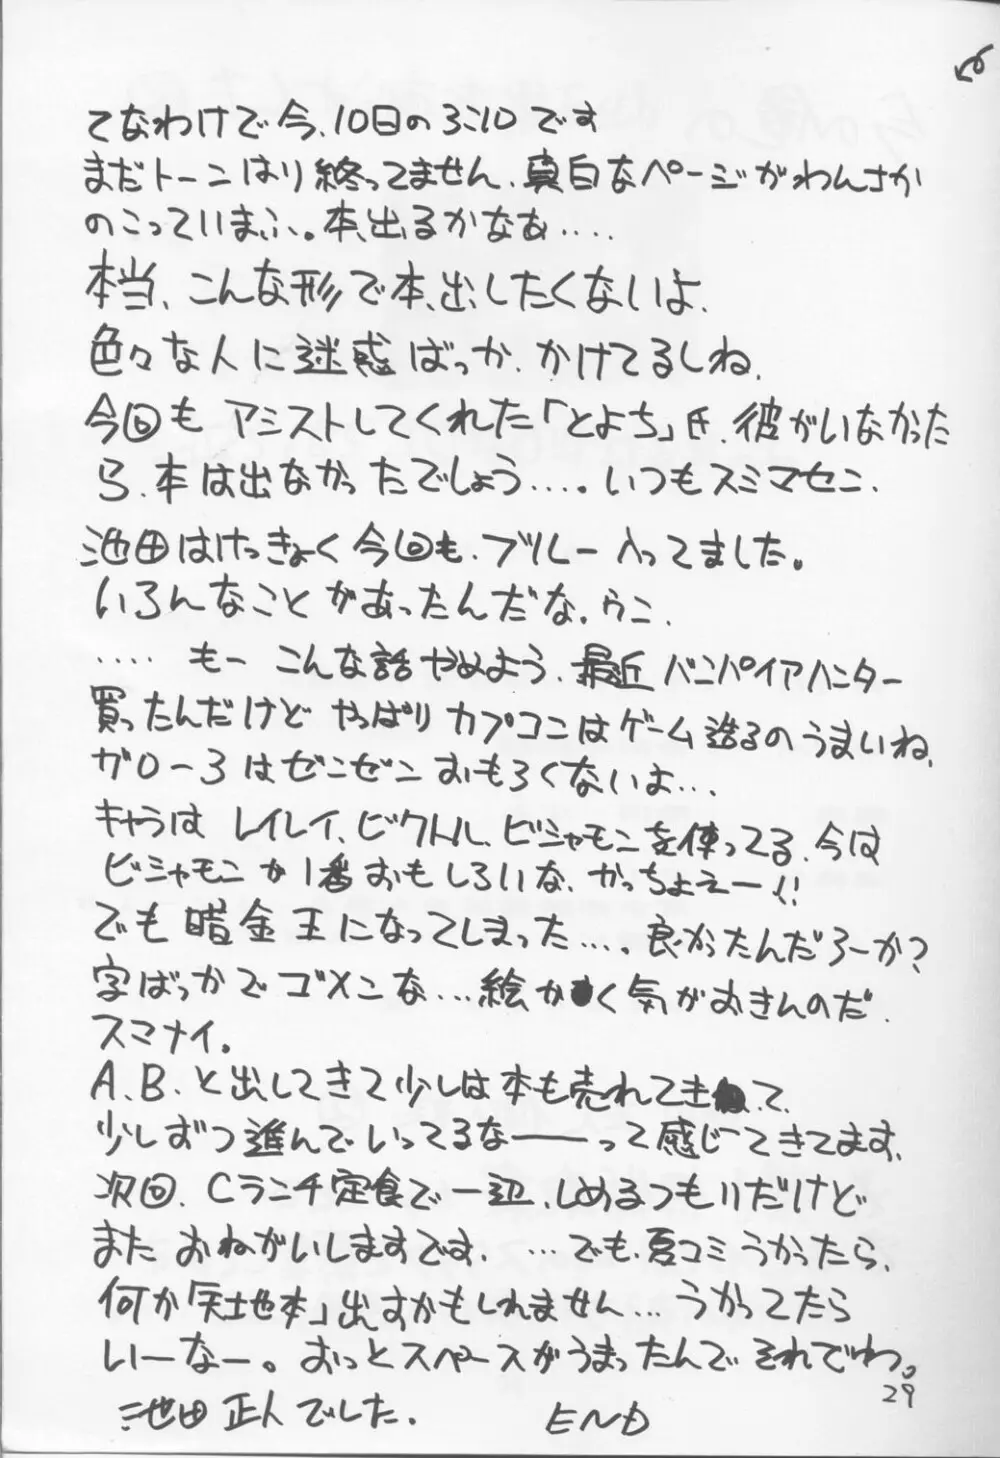 てなわけで今、10日の3:10です
まだトーンはり終ってません、真白なページがわんさか
のこっていまふ。本、出るかなあ‥‥
本当、こんな形で本、出したくないよ、
色々な人に迷惑ばっか、かけてるしね、
今回も アシストしてくれた「とよち」氏、彼がいなかった
ら、本は出なかったでしょう‥‥。いつもスミマセン、
池田はけっきょく今回も、ブルー入ってました。
いろんなことがあったんだな。ウン、
‥‥ もー こんな話やめよう、最近 バンパイアハンター
買ったんだけど やっぱり カプコンはゲーム造るのうまいね、
ガロー3はゼンゼン おもろくないよ…
キャラは レイレイ、ビクトル、ビシャモンを使ってる、今は
ビシャモンが1番おもしろいな、かっちょえー!!
でも 暗金王になってしまった…。良かったんだろーか?
字ばっかでゴメンな…絵かく気がおきんのだ、
スマナイ。
A、B、と出してきて少しは本も売れてきて、
少しずつ進んでいってるなーーって感じてきてます、
次回、Cランチ定食で一辺、しめるつもりだけど
また おねがいしますです、…でも、夏コミうかったら、
何か「天地本」出すかもしれません…うかってたら
いーなー。おっとスペースがうまったんで それでわ。
29
池田正人でした. END